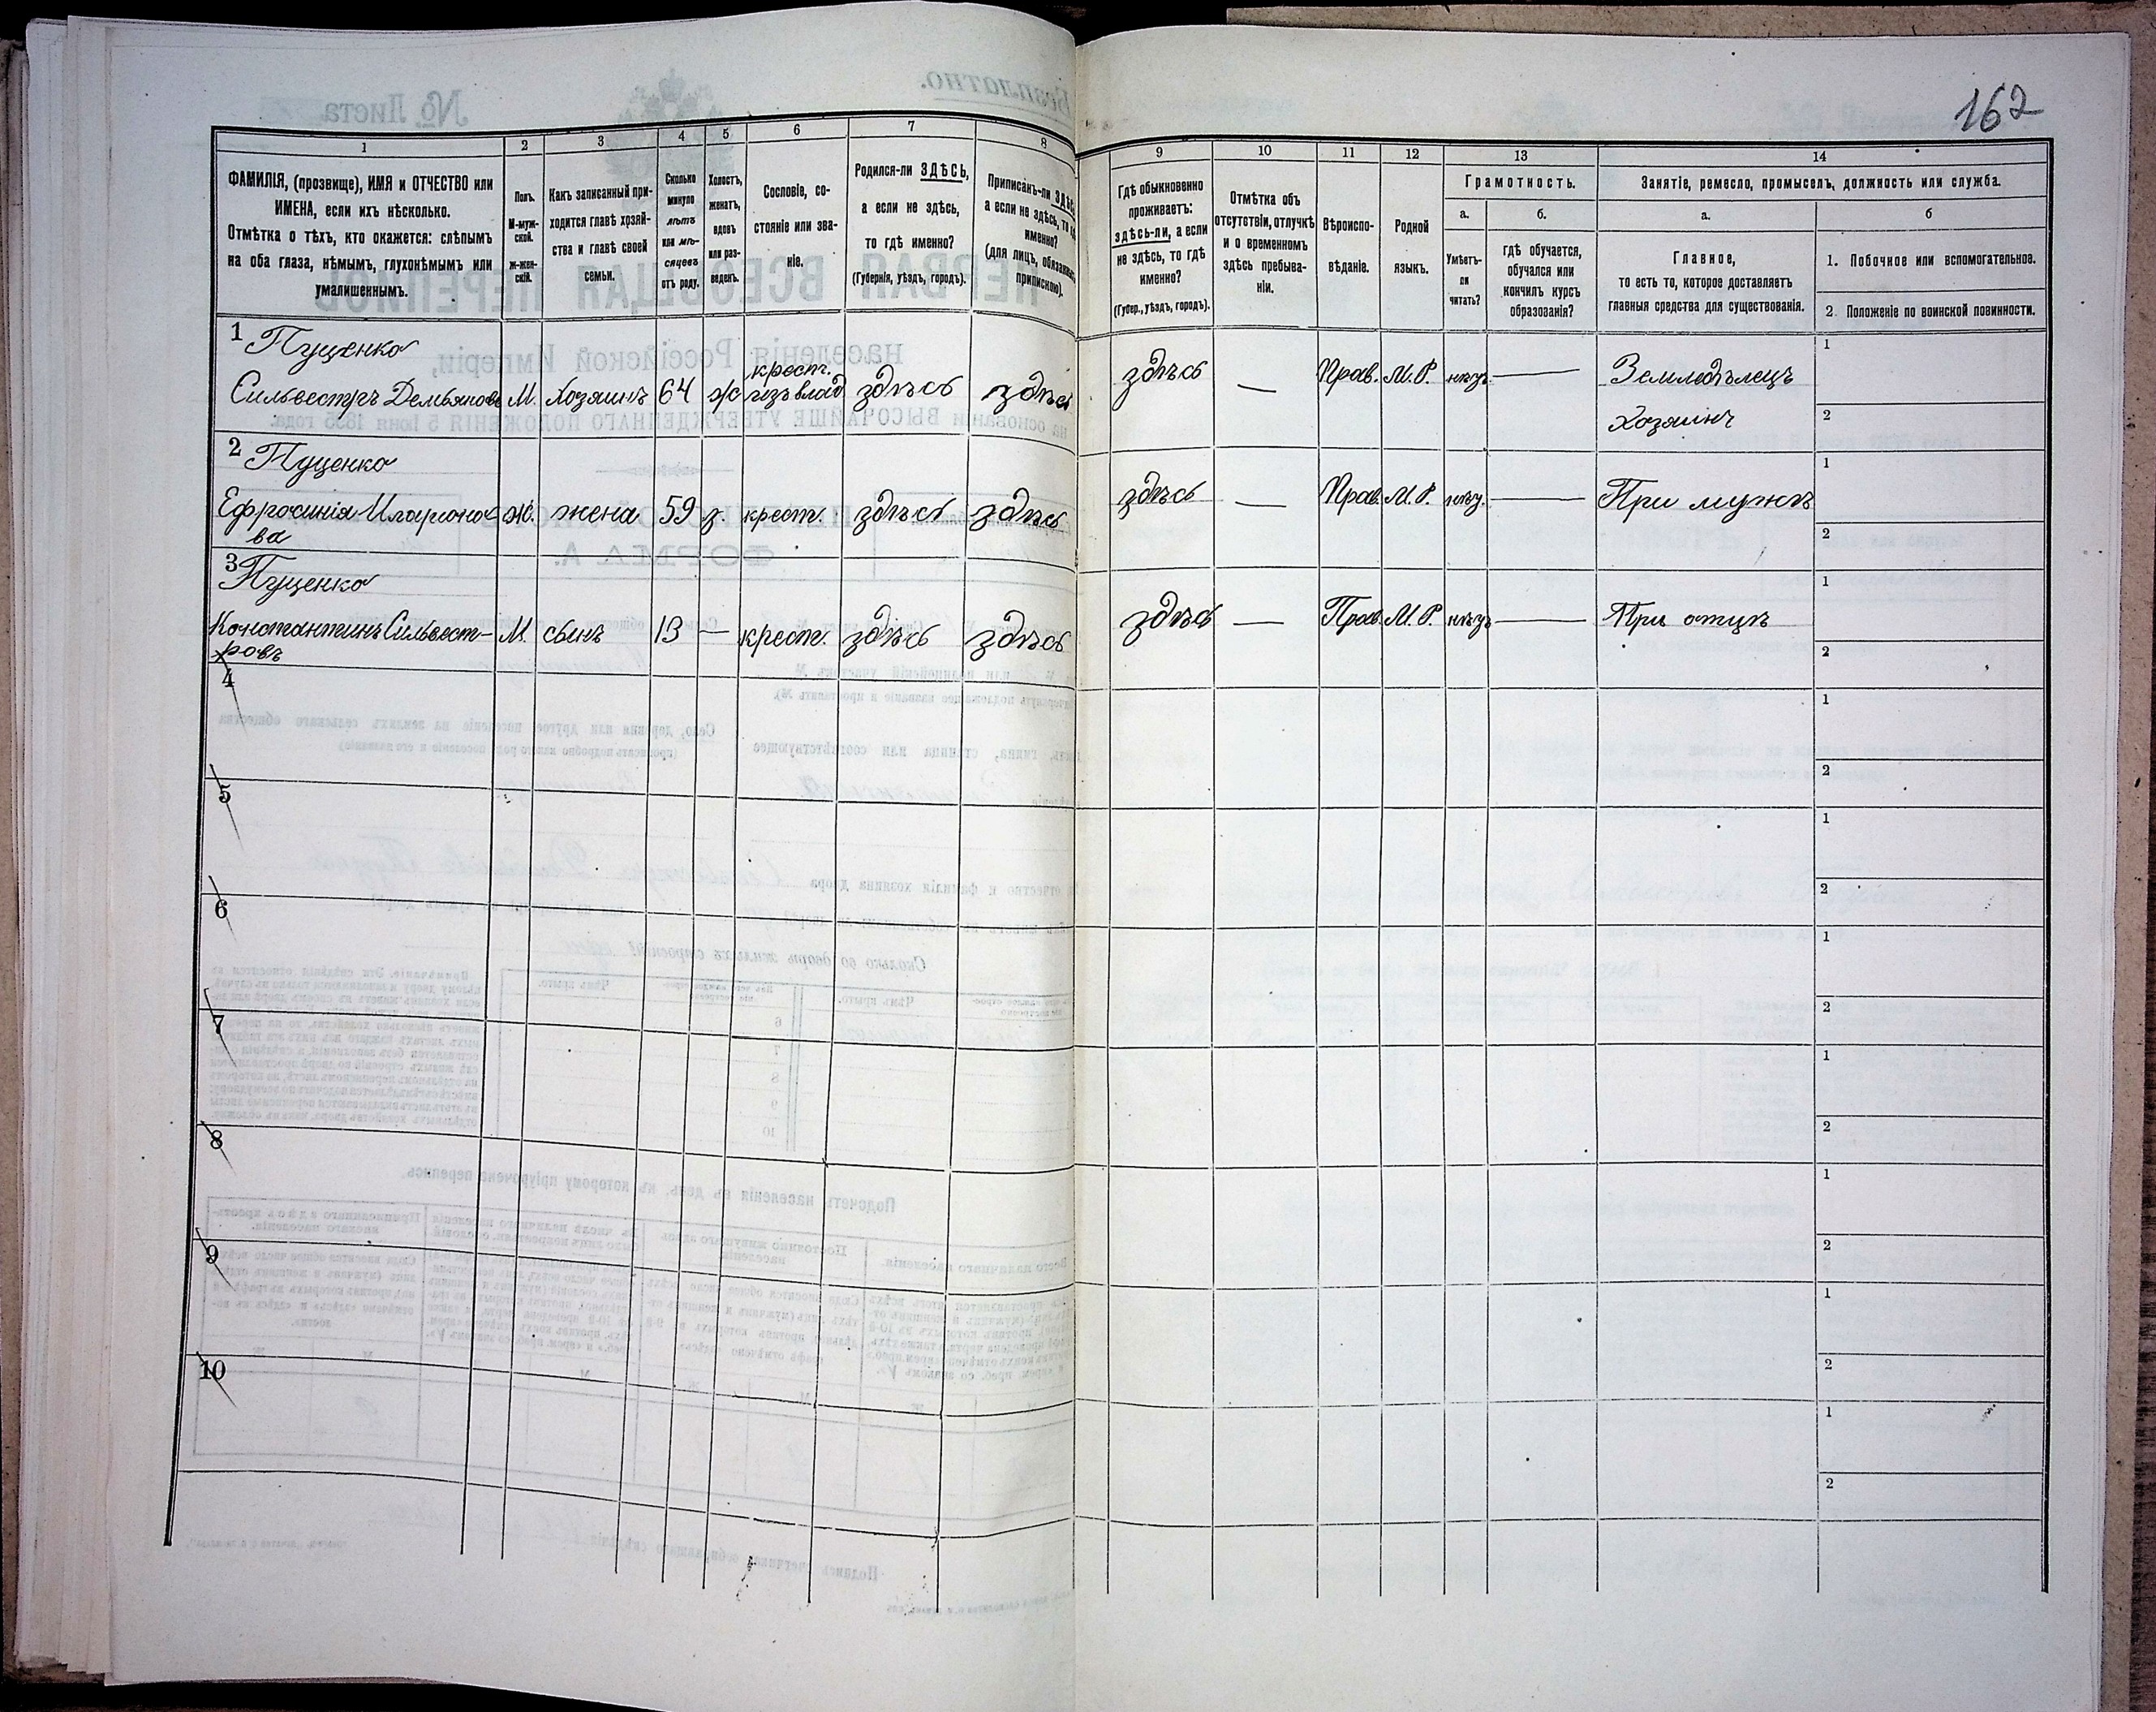 162
1 2 3 4 5 6 7 8 9 10 11 12 13 14
ФАМИЛІЯ, (прозвище), ИМЯ и ОТЧЕСТВО или
ИМЕНА, если ихъ нѣсколько.
Отмѣтка о тѣхъ, кто окажется: слѣпымъ
на оба глаза, нѣмымъ, глухонѣмымъ или
умалишеннымъ.
Полъ.
М-муж-
ской.
ж-жен-
скій.
Какъ записанный при-
ходится главѣ хозяй-
ства и главѣ своей
семьи.
Сколько
минуло
лѣтъ
или мѣ-
сяцевъ
отъ роду.
Холостъ,
женатъ,
вдовъ
или раз-
веденъ.
Сословіе, со-
стояніе или зва-
ніе.
Родился-ли ЗДѢСЬ,
а если не здѣсь,
то гдѣ именно?
(Губернія, уѣздъ, городъ).
Приписанъ-ли
а если не здѣсь, то
именно?
(для лицъ,
припискою).
Гдѣ обыкновенно
проживаетъ:
здѣсь-ли, а если
не здѣсь, то гдѣ
именно?
(Губер., уѣздъ, городъ).
Отмѣтка объ
отсутствіи, отлучкѣ
и о временномъ
здѣсь пребыва-
ніи.
Вѣроиспо-
вѣданіе.
Родной
языкъ.
Грамотность.
а.
Умѣетъ-
ли
читать?
б.
гдѣ обучается,
обучался или
кончилъ курсъ
образованія?
Занятіе, ремесло, промыселъ, должность или служба.
а.
Главное,
то есть то, которое доставляетъ
главныя средства для существованія.
б
1. Побочное или вспомогательное.
2. Положеніе по воинской повинности.
1 Пуценко
крест.
Сильвестръ Демьяновъ М. Хозяинъ 64 ж здѣсь здѣсь здѣсь — Прав. М.Р. — Земледѣлецъ
Хозяинъ
1
2
2 Пуценко
Ефросинія Иларіоно- ж. жена 59 з. крест. здѣсь здѣсь здѣсь — Прав. М.Р. — При мужѣ
ва
1
2
3 Пуценко
Константинъ Сильвест- М. сынъ 13 — крест. здѣсь здѣсь здѣсь — Прав. М.Р. — При отцѣ
ровъ
1
2
4
1
2
5
1
2
6
1
2
7
1
2
8
1
2
9
1
2
10
1
2